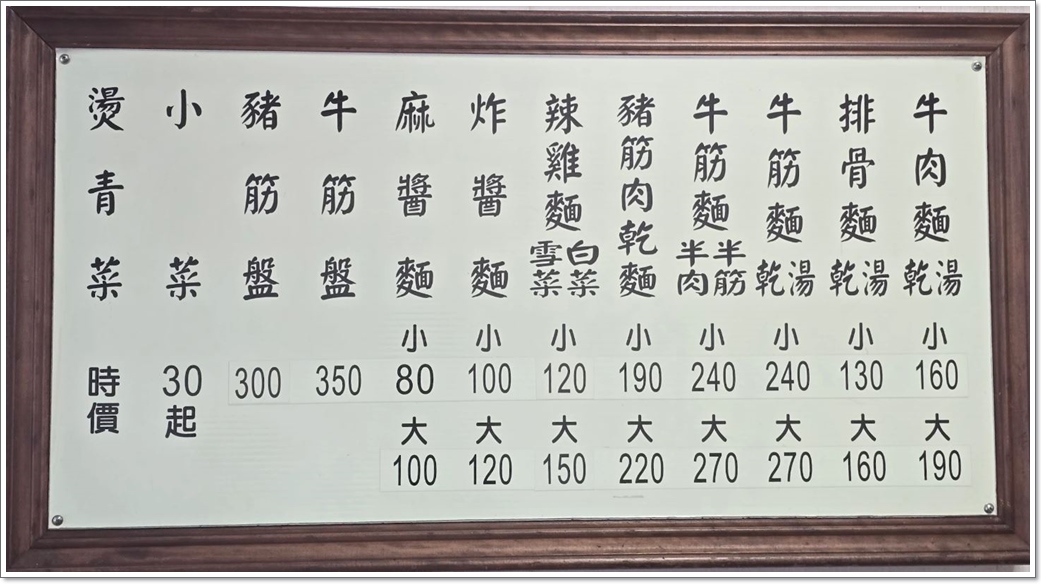 牛肉麵 湯 乾
小
160
大
190
排骨麵 湯 乾
小
130
大
160
牛筋麵 湯 乾
小
240
大
270
牛筋麵 半筋 半肉
小
240
大
270
豬筋肉乾麵
小
190
大
220
辣雞麵 白菜 雪菜
小
120
大
150
炸醬麵
小
100
大
120
麻醬麵
小
80
大
100
牛筋盤
350
豬筋盤
300
小菜
30起
燙青菜
時價